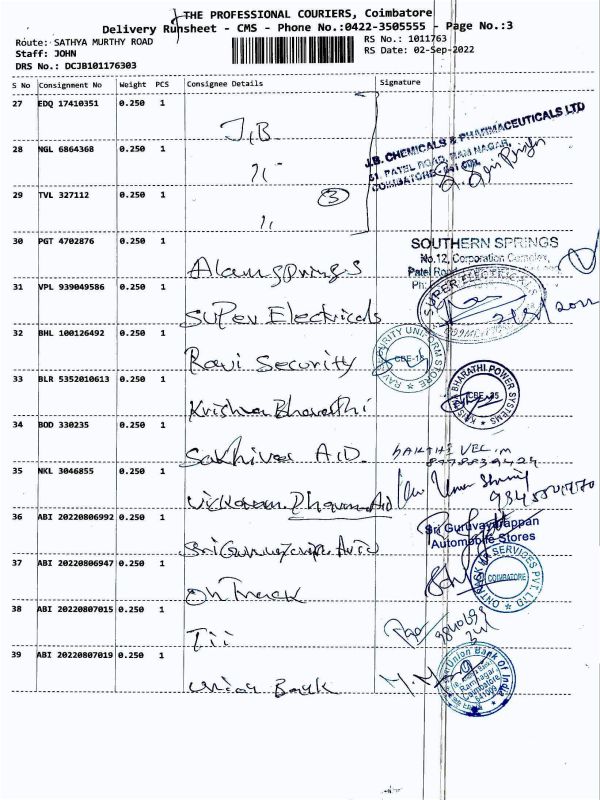 THE PROFESSIONAL COURIERS, Coimbatore
Delivery Runsheet - CMS - Phone No.:0422-3505555 - Page No.:3
Route: SATHYA MURTHY ROAD
RS No.: 1011763
Staff: JOHN
RS Date: 02-Sep-2022
DRS No.: DCJB101176303
S No Consignment No Weight PCS Consignee Details Signature
27 EDQ 17410351 0.250 1
J.B
J.B. CHEMICALS & PHARMACEUTICALS LTD
51, PATEL ROAD, RAM NAGAR,
COIMBATORE - 641 009.
28 NGL 6864368 0.250 1
29 TVL 327112 0.250 1
3
30 PGT 4702876 0.250 1
SOUTHERN SPRINGS
No.12, Corporation Complex,
Patel Road
Ph:
Alamsprings
31 VPL 939049586 0.250 1
SUPER ELECTRICALS
Super Electricals
32 BHL 100126492 0.250 1
SECURITY UNIFORM STORE
CBE-18
Ravi Security
33 BLR 5352010613 0.250 1
BHARATHI POWER SYSTEMS
Krishna Bharathi
34 BOD 330235 0.250 1
Sakhivel AID
SAKTHI VEL.M
35 NKL 3046855 0.250 1
36 ABI 20220806992 0.250 1
Sri Guruvayurappan
Automobile Stores
37 ABI 20220806947 0.250 1
ONTRACK HR SERVICES PVT. LTD
COIMBATORE
On Track
38 ABI 20220807015 0.250 1
Tii
39 ABI 20220807019 0.250 1
Union Bank Of India
Ramnagar
Coimbatore
641009
Union Bank